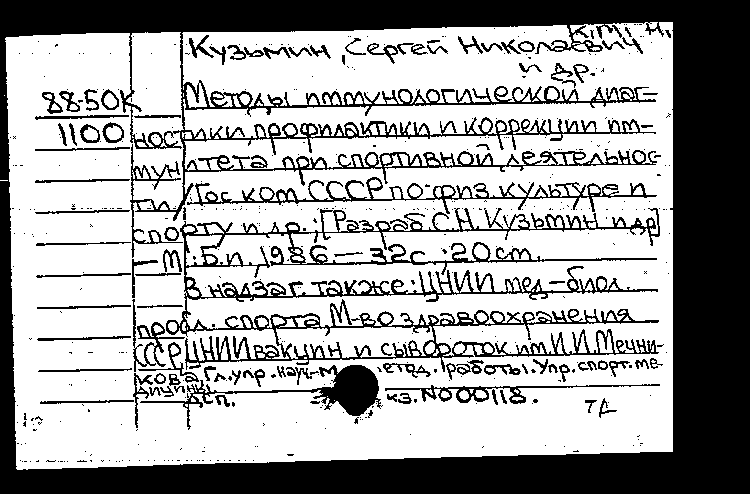 к.м.н.
Кузьмин, Сергей Николаевич
и др.
88-50К Методы иммунологической диаг-
1100 ностики, профилактики и коррекции им-
мунитета при спортивной деятельнос-
ти / Гос ком СССР по физ. культуре и
спорту и др.; [Разраб. С.Н. Кузьмин и др]
— М.: Б.и., 1986 — 32с.; 20см.
В надзаг. также: ЦНИИ мед-биол.
пробл. спорта, М-во здравоохранения
СССР, ЦНИИ вакцин и сывороток им. И.И. Мечни-
кова, Гл. упр. науч-м етод. работы. Упр. спорт. ме-
дицины
дсп. кз. №00118.